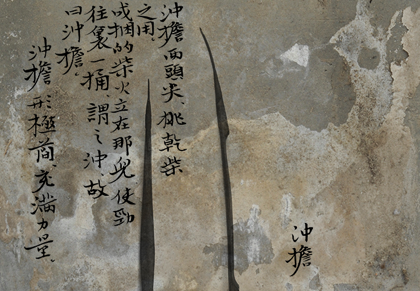 沖擔兩頭尖、挑乾柴
之用。
成捆的柴火立在那兒使勁
往裏一捅、謂之沖、故
曰沖擔。
沖擔形極簡充滿力量。
沖擔